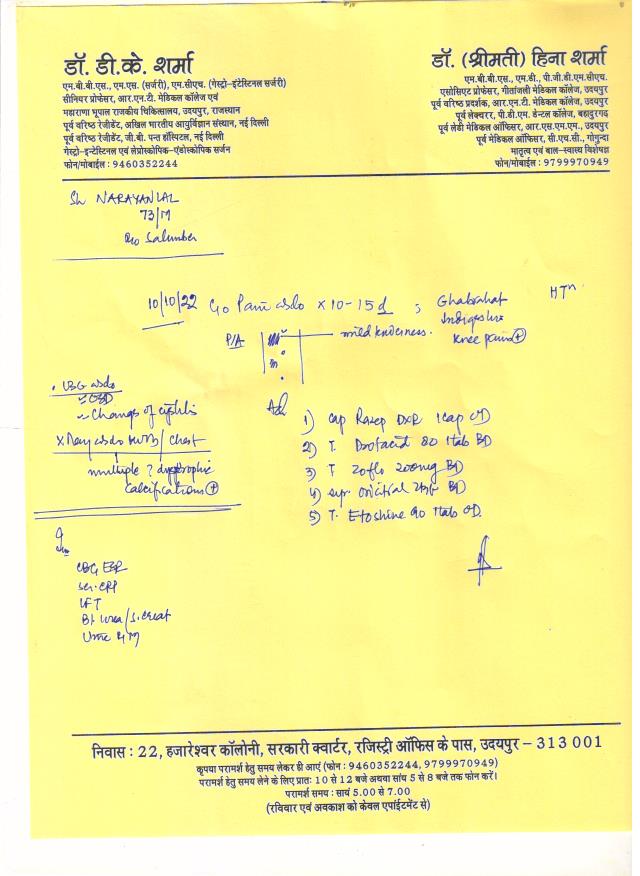 डॉ. डी.के. शर्मा
एम.बी.बी.एस., एम.एस. (सर्जरी), एम.सीएच. (गेस्ट्रो-इंटेस्टिनल सर्जरी)
सीनियर प्रोफेसर, आर.एन.टी. मेडिकल कॉलेज एवं
महाराणा भूपाल राजकीय चिकित्सालय, उदयपुर, राजस्थान
पूर्व वरिष्ठ रेजीडेंट, अखिल भारतीय आयुर्विज्ञान संस्थान, नई दिल्ली
पूर्व वरिष्ठ रेजीडेंट, जी.बी. पन्त हॉस्पिटल, नई दिल्ली
गेस्ट्रो-इन्टेस्टिनल एवं लेप्रोस्कोपिक-एंडोस्कोपिक सर्जन
फोन/मोबाईल : 9460352244
डॉ. (श्रीमती) हिना शर्मा
एम.बी.बी.एस., एम.डी., पी.जी.डी.एम.सीएच.
एसोसिएट प्रोफेसर, गीतांजली मेडिकल कॉलेज, उदयपुर
पूर्व वरिष्ठ प्रदर्शक, आर.एन.टी. मेडिकल कॉलेज, उदयपुर
पूर्व लेक्चरर, पी.डी.एम. डेन्टल कॉलेज, बहादुरगढ़
पूर्व लेडी मेडिकल ऑफिसर, आर.एस.एम.एम., उदयपुर
पूर्व मेडिकल ऑफिसर, सी.एच.सी., गोगुन्दा
मातृत्व एवं बाल-स्वास्थ्य विशेषज्ञ
फोन/मोबाईल : 9799970949
Sh NARAYANLAL
73/M
R/o Salumber
10/10/22 C/o Pain abdo x 10-15 d ; Ghabrahat
Indigestion
Knee pain +
HTn
P/A
mild tenderness.
USG abdo
Changes of cystitis
X Ray abdo / Chest
multiple ? dystrophic
calcifications +
Adv
1) Cap Razep DXR 1 cap OD
2) T. Drotacid 80 1 tab BD
3) T Zoflo 200mg BD
4) syr. BD
5) T. Etoshine 90 1 tab OD.
CBC ESR
Ser. CRP
LFT
Bl. Urea / S. creat
Urine
निवास : 22, हजारेश्वर कॉलोनी, सरकारी क्वार्टर, रजिस्ट्री ऑफिस के पास, उदयपुर - 313 001
कृपया परामर्श हेतु समय लेकर ही आएं (फोन : 9460352244, 9799970949)
परामर्श हेतु समय लेने के लिए प्रातः 10 से 12 बजे अथवा सांय 5 से 8 बजे तक फोन करें।
परामर्श समय : सायं 5.00 से 7.00
(रविवार एवं अवकाश को केवल एपॉइंटमेंट से)